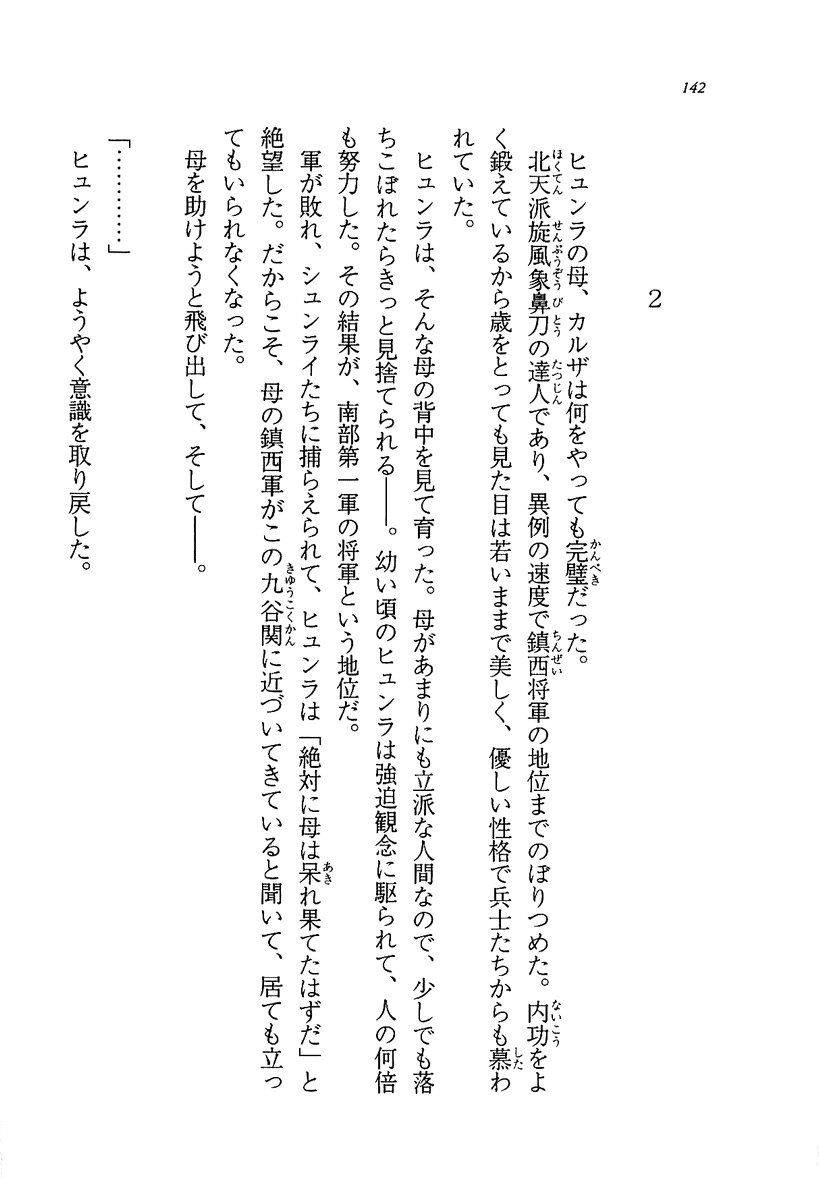 142
2
ヒュンラの母、カルザは何をやっても完璧だった。
北天派旋風象鼻刀の達人であり、異例の速度で鎮西将軍の地位までのぼりつめた。内功をよ
く鍛えているから歳をとっても見た目は若いままで美しく、優しい性格で兵士たちからも慕わ
れていた。
ヒュンラは、そんな母の背中を見て育った。母があまりにも立派な人間なので、少しでも落
ちこぼれたらきっと見捨てられる――。幼い頃のヒュンラは強迫観念に駆られて、人の何倍
も努力した。その結果が、南部第一軍の将軍という地位だ。
軍が敗れ、シュンライたちに捕らえられて、ヒュンラは「絶対に母は呆れ果てたはずだ」と
絶望した。だからこそ、母の鎮西軍がこの九谷関に近づいてきていると聞いて、居ても立っ
てもいられなくなった。
母を助けようと飛び出して、そして――。
「…………」
ヒュンラは、ようやく意識を取り戻した。